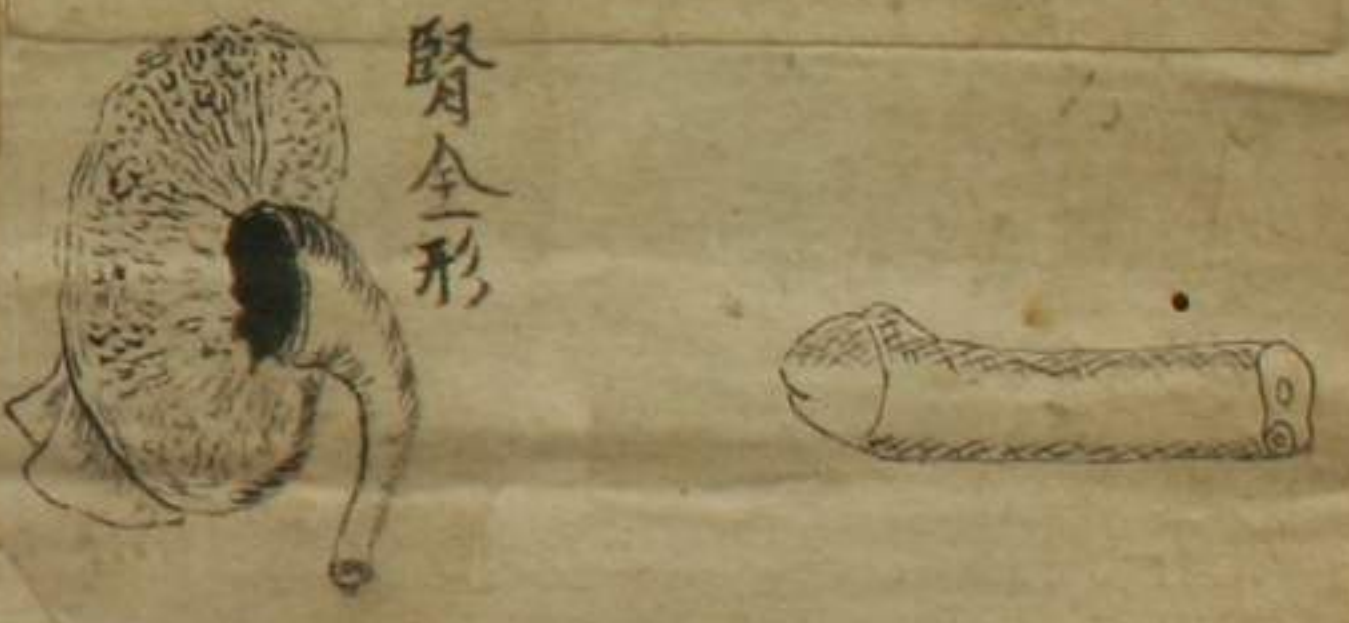 腎全形